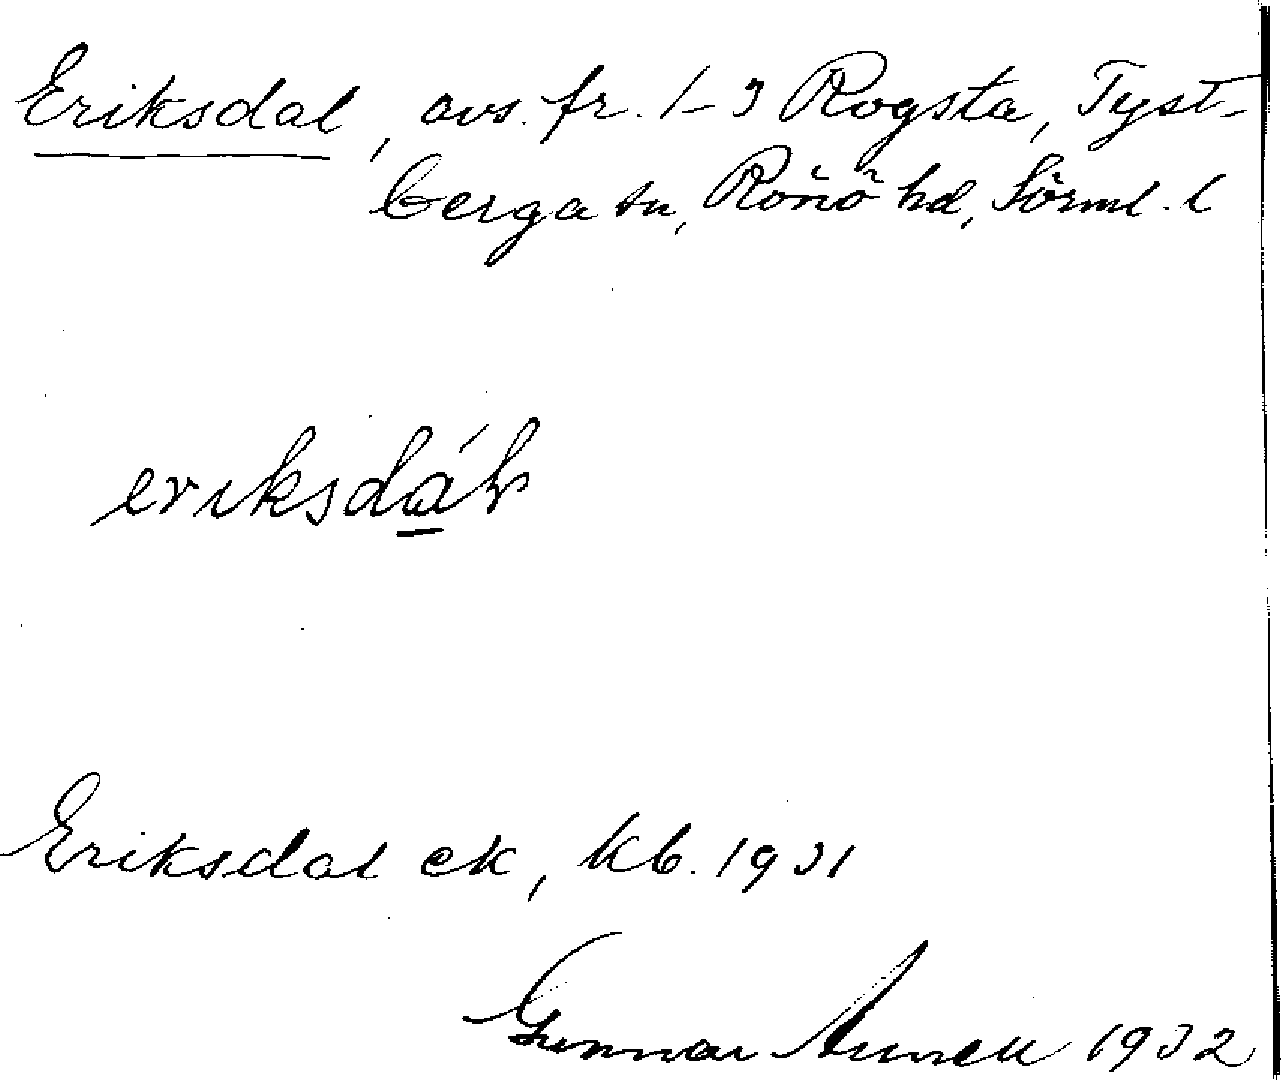 Eriksdal, avs. fr. 1-3 Rogsta, Tyst-
berga sn, Rönö hd, Sörml. l
eriksdál
Eriksdal ek, kb. 1931
Gunnar 1932